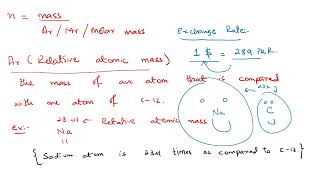 n = mass
Ar / Mr / molar mass
Exchange Rate:
1 $ = 289 PKR.
Ar (Relative atomic mass)
the mass of an atom that is compared
with one atom of C-12.
23x
ex:- 23.01 ← Relative atomic mass
Na
11
Na
C
{ Sodium atom is 2301 times as compared to C-12. }